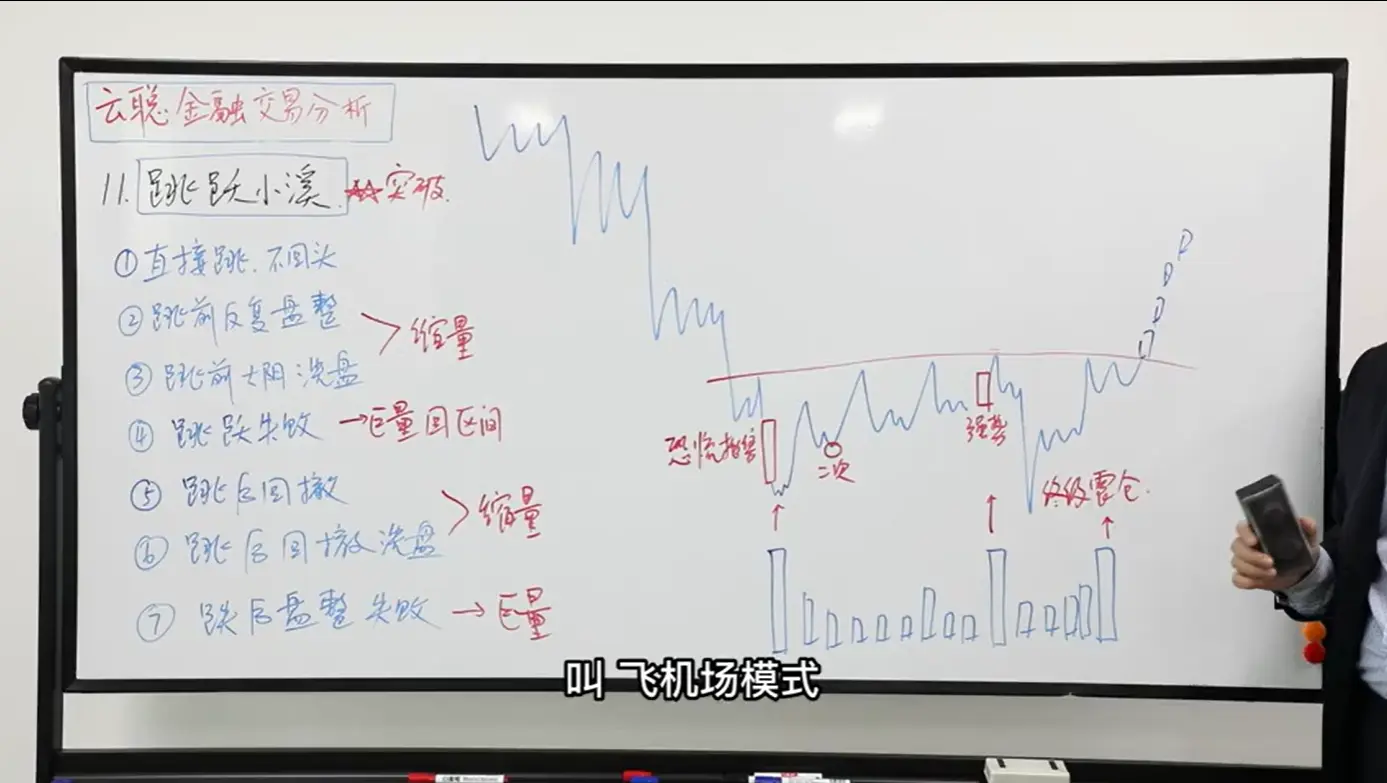 云聪金融交易分析
11. 跳跃小溪. 突破.
①直接跳.不回头
②跳前反复盘整
缩量
③跳前大阴洗盘
④跳跃失败→巨量回区间
⑤跳后回撤
缩量
⑥跳后回撤洗盘
⑦跌后盘整失败→巨量
恐慌抛售
二次
强势
终级震仓.
叫 飞机场模式